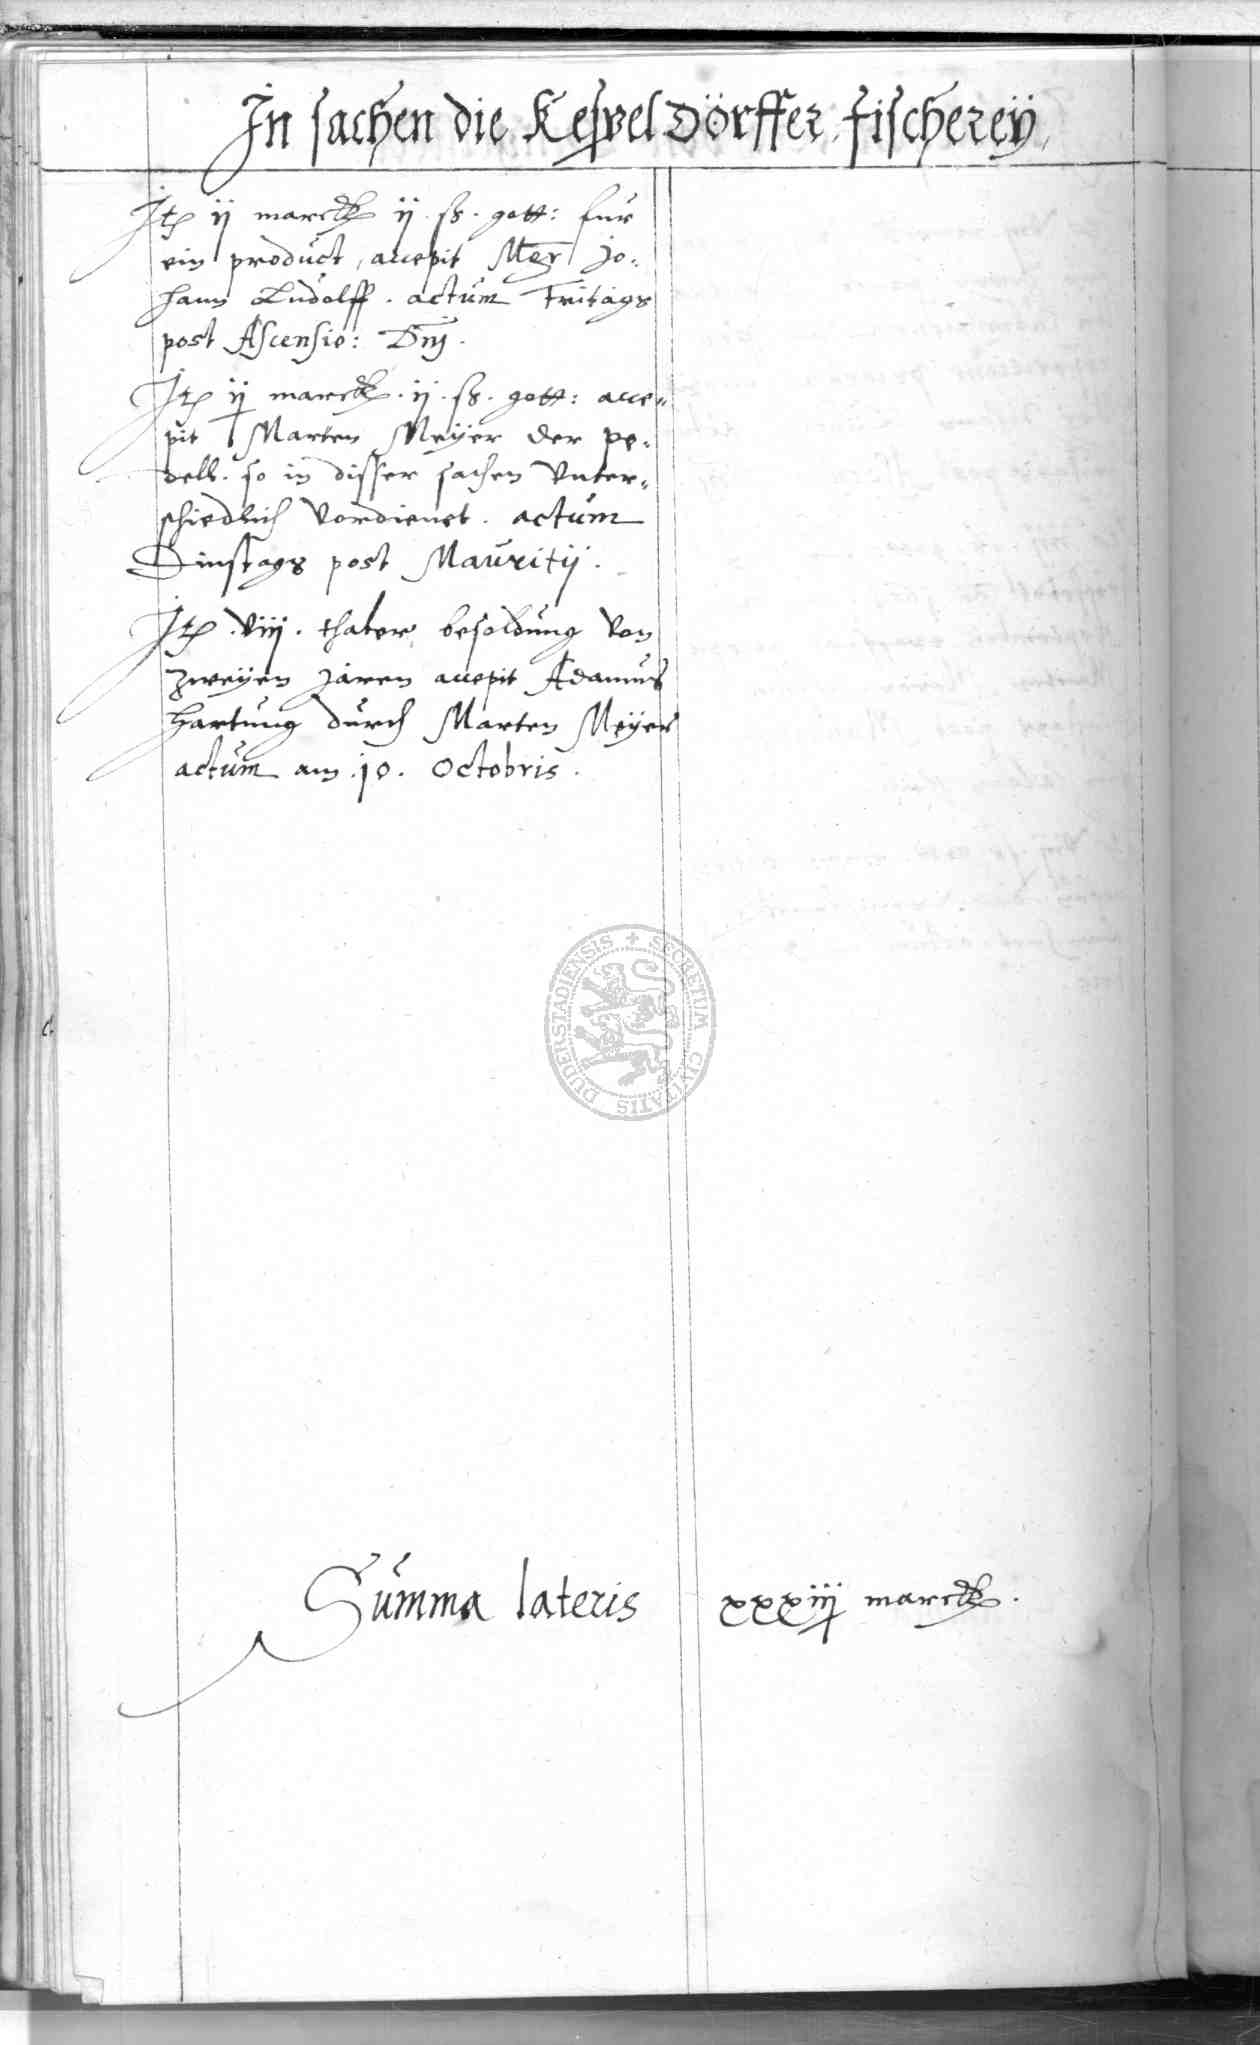 In sachen die Kespel Dörffer fischereÿ
Itꝫ ij marck ij . ß . gott: fur
ein product, accepit Mgr Jo-
hann Ludolff . actum Fritags
post Ascensio: Dnj .
Itꝫ ij marck . ij . ß . gott: acce-
pit Marten Meÿer der pe-
dell . so in disser sachen Vnter-
schiedlich Vordienet . actum
Dinstags post Mauritij .
Itꝫ . viij . thaler besoldung Von
zweÿen jaren accepit Adamus
Hartung durch Marten Meÿer
actum am . 10 . Octobris .
SECRETUM CIVITATIS DUDERSTADIENSIS
Summa lateris xxxiij marck .